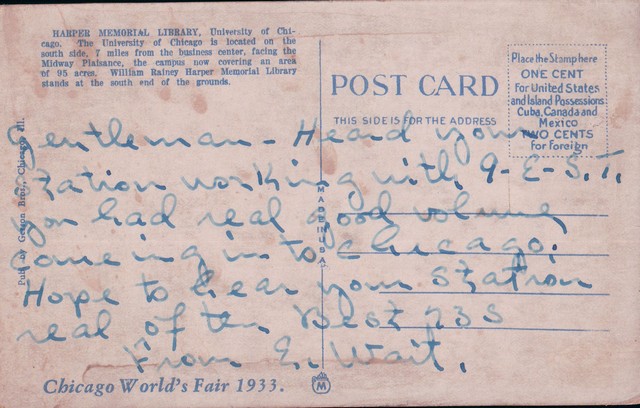 HARPER MEMORIAL LIBRARY, University of Chi-
cago. The University of Chicago is located on the
south side, 7 miles from the business center, facing the
Midway Plaisance, the campus now covering an area
of 95 acres. William Rainey Harper Memorial Library
stands at the south end of the grounds.
POST CARD
THIS SIDE IS FOR THE ADDRESS
Place the Stamp here
ONE CENT
For United States
and Island Possessions
Cuba, Canada and
Mexico
TWO CENTS
for Foreign
Pub. by Gerson Bros., Chicago, Ill.
MADE IN U.S.A.
Gentleman - Heard your
station working with 9-E-S.T.
you had real good volume
comeing in to chicago.
Hope to hear your station
real often Best 73S
From E. Wait.
Chicago World's Fair 1933.
M